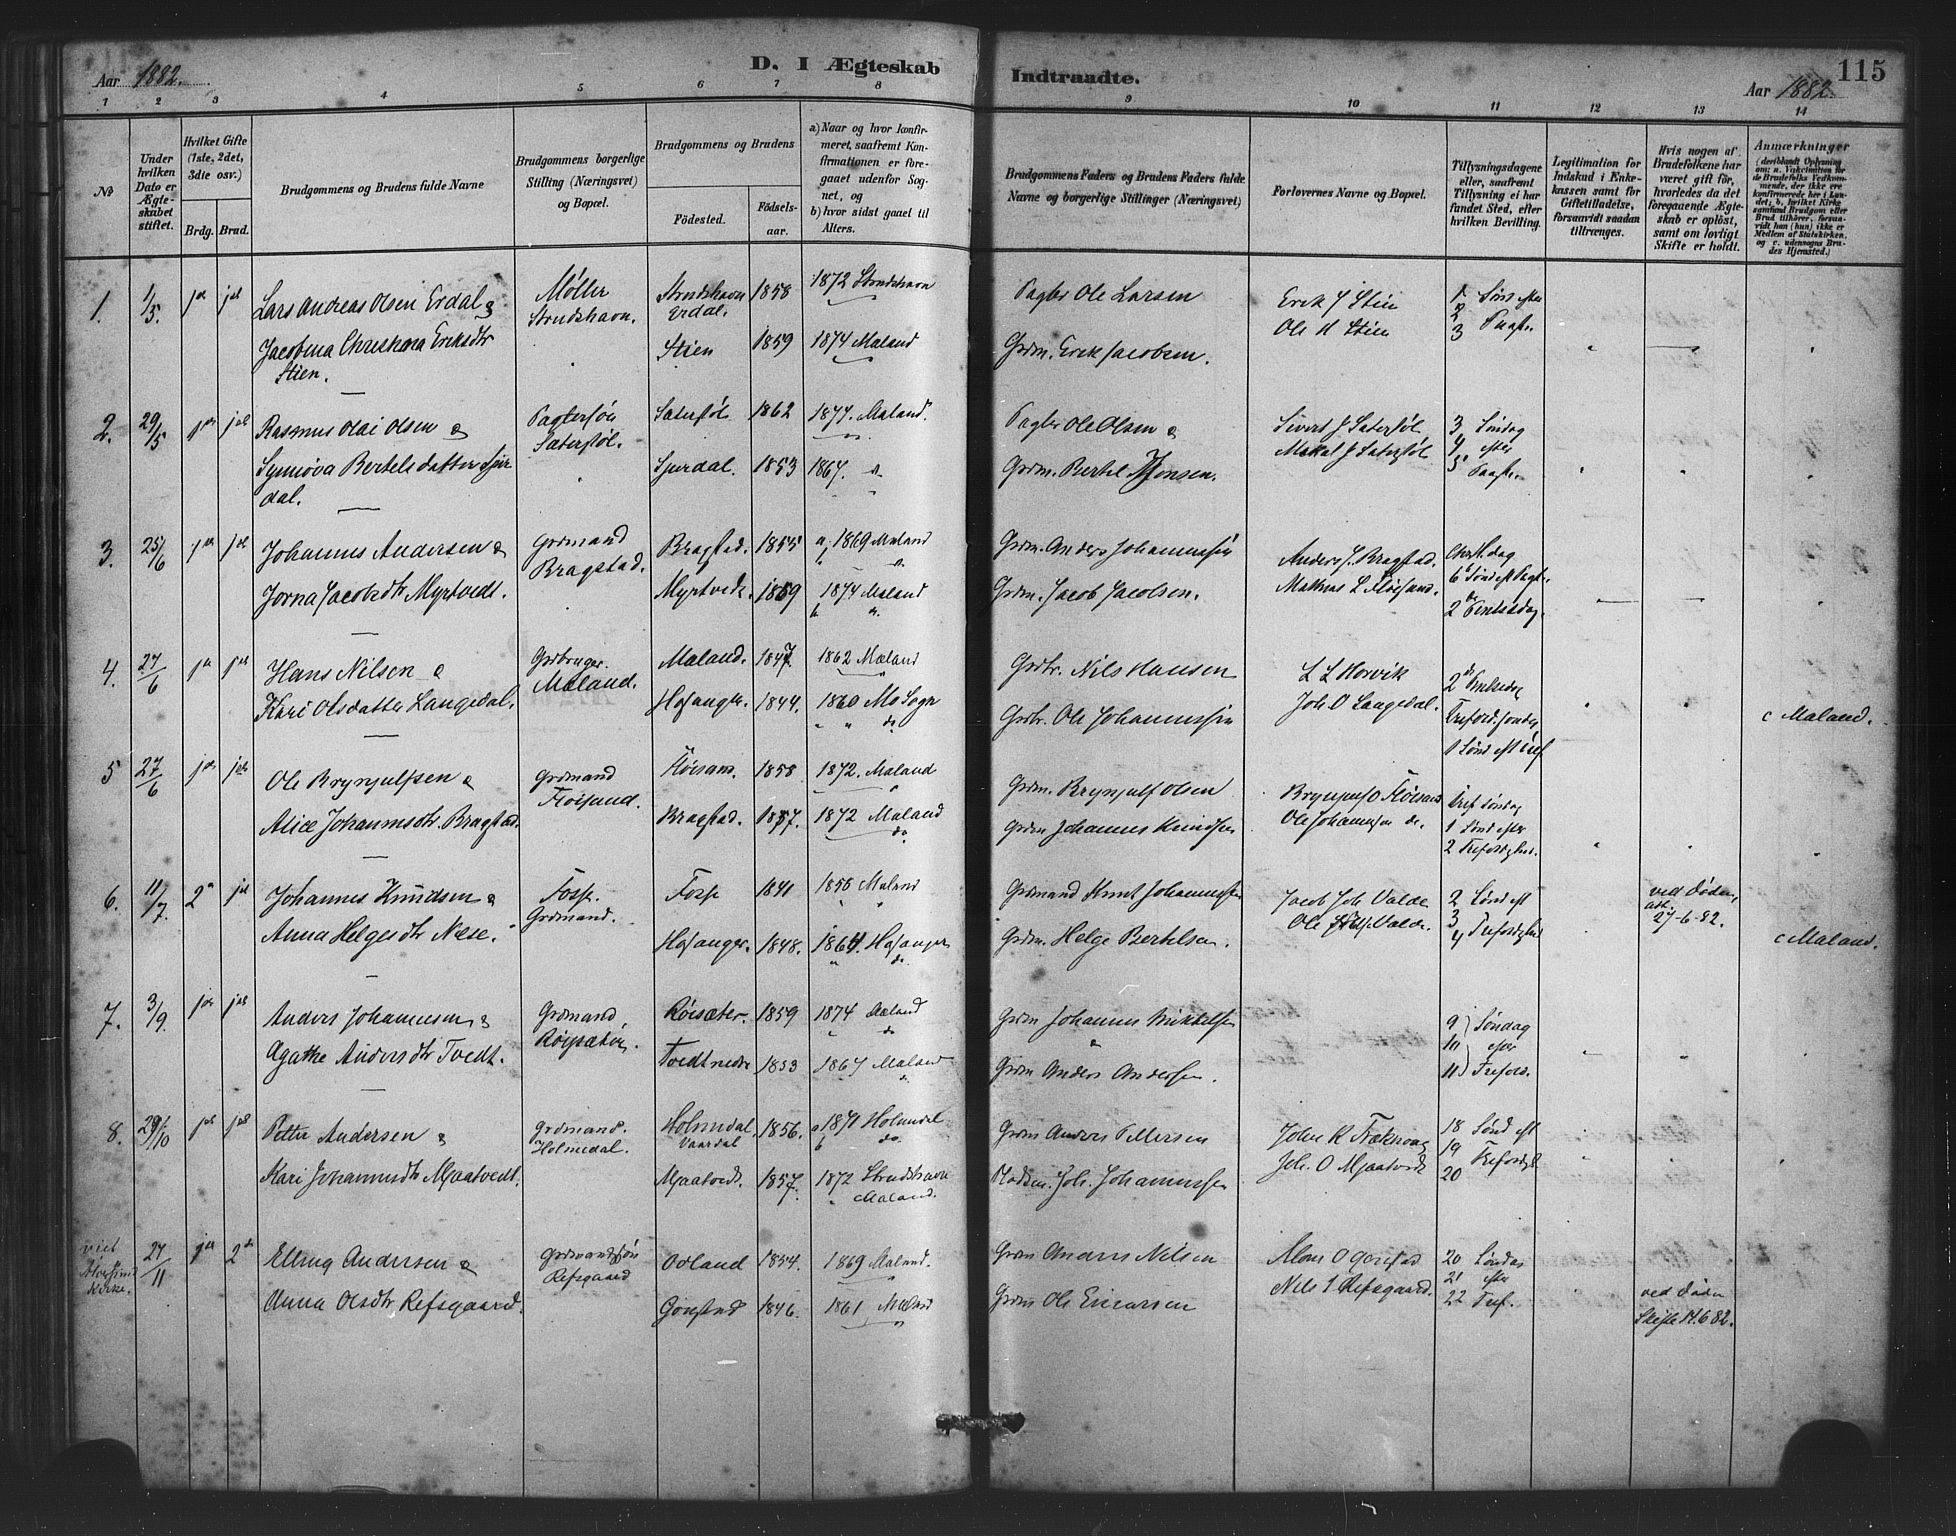 Aar 1882.
D. I Ægteskab
Indtraadte.
115
Aar 1882.
1 2 3 4 5 6 7 8
9 10 11 12 13 14
No
Under hvilken Dato er Ægteskabet stiftet.
Hvilket Gifte (1ste, 2det, 3die osv.)
Brdg. Brud.
Brudgommens og Brudens fulde Navne
Brudgommens borgerlige Stilling (Næringsvei) og Bopæl.
Brudgommens og Brudens
Födested.
Födselsaar.
a) Naar og hvor konfirmeret, saafremt Konfirmationen er foregaaet udenfor Sognet, og
b) hvor sidst gaaet til Alters.
Brudgommens Faders og Brudens Faders fulde Navne og borgerlige Stillinger (Næringsvei)
Forlovernes Navne og Bopæl.
Tillysningsdagene eller, saafremt Tillysning ei har fundet Sted, efter hvilken Bevilling.
Legitimation for Indskud i Enkekassen samt for Giftetilladelse, forsaavidt saadan tiltrænges.
Hvis nogen af Brudefolkene har været gift för, hvorledes da det foregaaende Ægteskab er oplöst, samt om lovligt Skifte er holdt.
Anmærkninger
(deriblandt Oplysning om: a. Vakcination for de Brudefolks Vedkommende, der ikke ere konfirmerede her i Landet; b. hvilket Kirkesamfund Brudgom eller Brud tilhörer, forsaavidt han (hun) ikke er Medlem af Statskirken, og c. udensogns Brudes Hjemsted.)
1. 1/5. Lars Andreas Olsen Erdal & Møller Strudshavn 1858 1872 Strudshavn
Strudshavn. Erdal.
Jacobina Christiana Eriksdtr Stien 1859 1874 Maland
Stien.
Pagter Ole Larsen Erik J Stien 1 Sønd efter
Ole Stien 2
3 Paaske.
Grdm. Erik Jacobsen.
2. 29/5 Rasmus Olai Olsen & Pagtersøn Sæterstøl 1862 1877. Maland.
Sæterstøl.
Synnøva Bertelsdatter Spjerdal. 1853 1867.
Pagter Ole Olsen & Sivert J Sæterstøl 3 Søndag
4 efter
5.
Grdm. Bertel Monsen.
3. 25/6 Johannes Andersen & Grdmand Bragstad. 1855 a, 1869 Maland
Bragstad.
Jorna Jacobsdtr Myrtvedt. Myrtvedt. 1859 1874 Maland
Grdm. Anders Johannessen Anders J. Bragstad.
Grdm. Jacob Jacobsen. Mathias L Fløisand.
2 Pintsedag.
4. 27/6 Hans Nilsen & Grdbruger. Maland. 1847. 1862 Mæland
Maland.
Kari Olsdatter Langedal. Hosanger. 1844. 1860 Mo Sogn
do
Grdbr. Nils Hansen L L Horvik 2 Pintsedag
Grdbr. Ole Johannessen Joh O Langedal. c Maland.
5 27/6 Ole Brynjulfsen & Grdmand Fløisand. 1858 1872. Maland
Fløisand.
Alice Johannesdtr. Bragstad. Bragstad. 1857. 1872 Maland
do
Grdm. Brynjulf Olsen Brynjulf O Fløisand Søndag
Grdm Johannes Knudsen Ole Johannessen do. 1 Sønd efter
2
6. 11/7. Johannes Knudsen & Fosse. Fosse 1841 1856 Maland
Grdmand.
Anna Helgesdtr Næse. Hosanger. 1848. 1864. Hosanger
do.
Grdmand Knut Johannessen Jacob Joh Valde 2 Sønd eft ved Døden,
Ole Valde. 3 27-6-82.
Grdm. Helge Bertelsen. 4 c Maland.
7. 3/9. Anders Johannessen & Grdmand Røisæter. 1859 1874 Maland
Røisæter. do
Agathe Andersdtr Tvedt. Tvedtnedre 1853 1867 Maland
Grdm Johannes Mikkelsen 9 Søndag
10 efter
Grdm Anders Andersen. 11 Trefold.
8. 29/10 Petter Andersen & Grdmand. Holmedal. 1856. a 1871 Holmedal
Holmedal. Vaardal do.
Kari Johannesdtr Mjaatvedt. Mjaatvedt. 1857. 1872 Strudshavn
Maland.
Grdm Anders Pettersen John R Fræknaag 18 Sønd eft
Joh. O Mjaatvedt 19
20
Pladsm. Joh. Johannessen
viet
Kirke. 27/11 Elling Andersen & Grdmandssøn Odland 1854. 1869 Maland.
Refsgaard
Anna Olsdtr Refsgaard. Gonstad 1846. 1861 Maland
Grdm Anders Nilsen Mons O Gonstad 20 Søndag
Nils I Refsgaard. 21 efter
22 Tref.
Grdm Ole Einarsen ved Døden
Skifte 14.6 82.